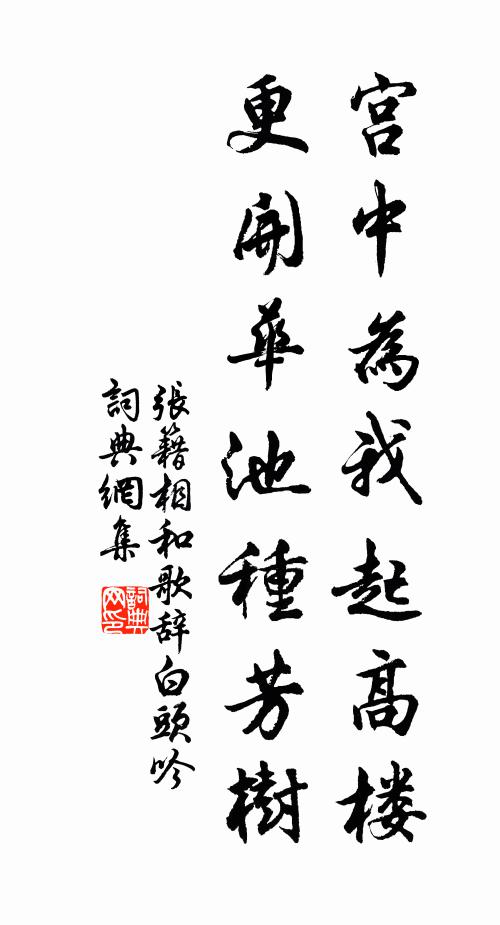 宫中為我起高楼
更開華池種芳樹
張籍相和歌辞白頭吟
詞典網集
詞典
网印